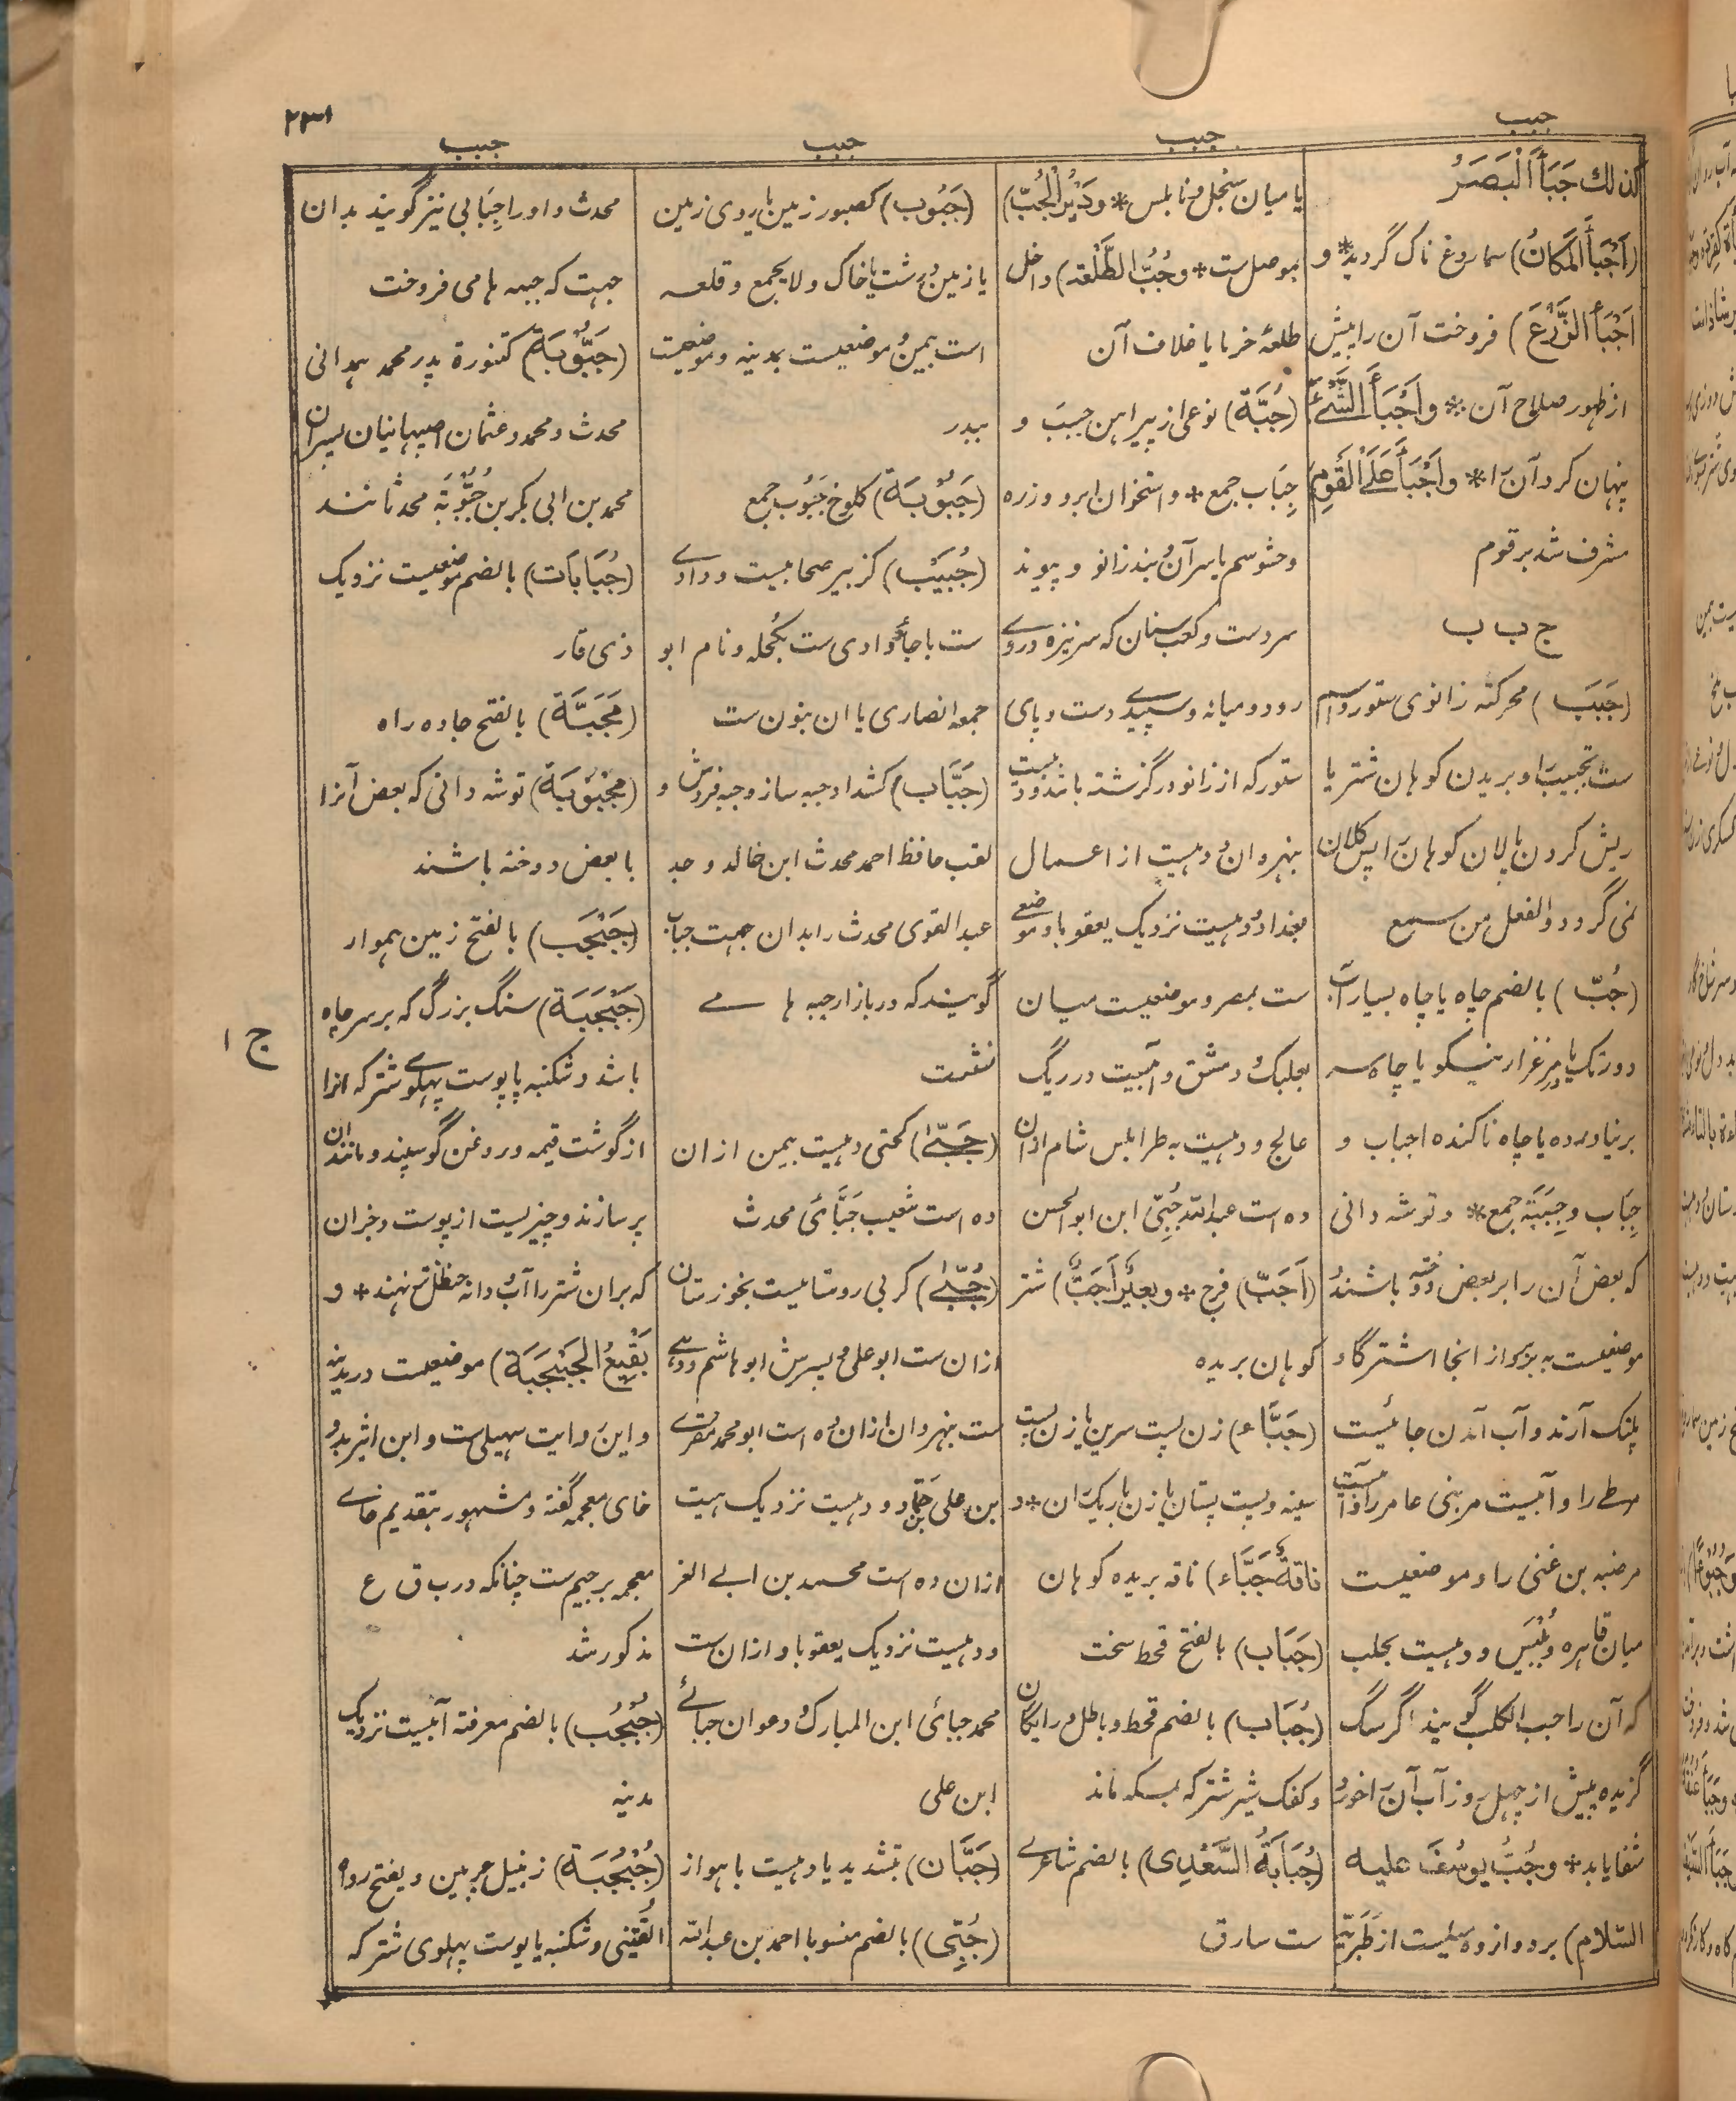 ۲۳۱
جبب
جبب
جبب
جبب
كذلك جَبَأَ الْبَصَرُ
(اَجْبَأَ الْمَكَانُ) سماروغ ناک گردید* و
اَجْبَأَ الزَّرْعَ) فروخت آن را پیش
از ظهور صلاح آن* وَاَجْبَأَ الشَّیْءَ)
پنهان کرد آن را* وَاَجْبَأَ عَلَی الْقَوْمِ)
مشرف شد بر قوم
ج ب ب
(جَبَب) محرکة زانوی ستور واسم
ست تجبیب را و بریدن کوهان شتر یا
ریش کردن پالان کوهان را پس کلان
نمی گردد والفعل من سمع
(جُبّ) بالضم چاه یا چاه بسیار آب
دورتک یا در مرغزار نیکو یا چاه سر
برنیاورده یا چاه ناکنده اجباب و
جِبَاب وجِبَبَة جمع* و توشه دانی
که بعض آن را بر بعض دوخته باشند و
موضعیست به بربر از انجا اشتر گاو
پلنگ آرند و آب آمدن جائیست
مرطے را و آبیست مر بنی عامر را و آبیست
مر ضبه بن غنی را و موضعیست
میان قاهره و بُلْبَیس و دهیست بحلب
که آن را جب الکلب گویند اگر سگ
گزیده پیش از چهل روز آب آن را خورد
شفا یابد* وَجُبُّ یُوسُفَ علیه
السّلام) بر دوازده میلیست از طَبَرِیّة
یا میان سنجل و نابلس* وَدَیْرُ الْجُبّ)
بموصل ست* وجُبُّ الطَّلْعَة) داخل
طلعۀ خرما یا غلاف آن
(جُبَّة) نوعی از پیراهن جُبَب و
جِبَاب جمع* و استخوان ابرو و زره
و حشو سم یا سر آن و بند زانو و پیوند
سر دست و کعب سنان که سر نیزه در وے
رود و میانه و سپیدے دست و پای
ستور که از زانو در گزشته باشد و دهیست
بنهروان و دهیست از اعمال
بغداد و دهیست نزدیک یعقوبا و موضعے
ست بمصر و موضعیست میان
بعلبک و دمشق و آبیست در ریگ
عالج و دهیست به طرابلس شام از ان
ده است عبدالله جُبِّیّ ابن ابو الحسن
(اَجَبّ) فرج* وبَعِیْرٌ اَجَبُّ) شتر
کوهان بریده
(جَبَّاء) زن پست سرین یا زن پست
سینه و پست پستان یا زن باریک ران* و
نَاقَةٌ جَبَّاء) ناقه بریده کوهان
(جَبَاب) بالفتح قحط سخت
(جُبَاب) بالضم قحط و باطل و رایگان
و کفک شیر شتر که بمسکه ماند
(جُبَابَةُ السَّعْدِی) بالضم شاعرے
ست سارق
(جَبُوب) کصبور زمین یا روی زمین
یا زمین درشت یا خاک ولا یجمع و قلعه
است بیمن و موضعیست بمدینه و موضعیست
ببدر
(جَبُوْبَة) کلوخ جَبُوب جمع
(جُبَیْب) کزبیر صحابیست و وادے
ست باجاء و وادی ست بکُحله و نام ابو
جمعه انصاری یا ان بنون ست
(جَبَّاب) کشداد جبه ساز و جبه فروش و
لقب حافظ احمد محدث ابن خالد و جد
عبد القوی محدث را بدان جهت جباب
گویند که در بازار جبه ها مے
نشست
(جَبّٰی) کحتی دهیست بیمن از ان
ده است شعیب جَبَّائی محدث
(جُبّٰی) کربی روستا ییست بخوزستان
از ان ست ابو علی و پسرش ابو هاشم و دهے
ست بنهروان از ان ده است ابو محمد مقرے
بن علی حماد و دهیست نزدیک هیت
از ان ده است محمد بن ابی العز
و دهیست نزدیک یعقوبا و از ان ست
محمد جبائی ابن المبارک و دعوان جبائے
ابن علی
(جَبَّان) بتشدید با دهیست باهواز
(جُبِّی) بالضم منسوبا احمد بن عبدالله
محدث و او را جِبَابی نیز گویند بدان
جهت که جبه ها می فروخت
(جَبُّوْبَة) کتنورة پدر محمد همدانی
محدث و محمد و عثمان اصبهانیان پسران
محمد بن ابی بکر بن جَبُّوْبَة محدثانند
(جُبَابَات) بالضم موضعیست نزدیک
ذی قار
(مَجَبَّة) بالفتح جاده راه
(مَجْبُوْبَة) توشه دانی که بعض آنرا
با بعض دوخته باشند
(جَبْجَب) بالفتح زمین هموار
(جَبْجَبَة) سنگ بزرگ که بر سر چاه
باشد و شکنبه یا پوست پهلوے شتر که انرا
از گوشت قیمه و روغن گوسپند و مانند ان
پر سازند و چیزیست از پوست و جز ان
که بران شتر را آب و دانه حنظل تقع نهند* و
بَقِیْعُ الْجَبْجَبَة) موضعیست در مدینه
و این روایت سهیلی ست و ابن اثیر بدو
خای معجمه گفته و مشهور بتقدیم خاے
معجمه بر جیم ست چنانکه در ب ق ع
مذکور شد
(جُبْجُب) بالضم معرفة آبیست نزدیک
مدینه
(جُبْجُبَة) زنبیل چرمین و بفتح رواه
القُتَیبی و شکنبه یا پوست پهلوی شتر که
ج ۱